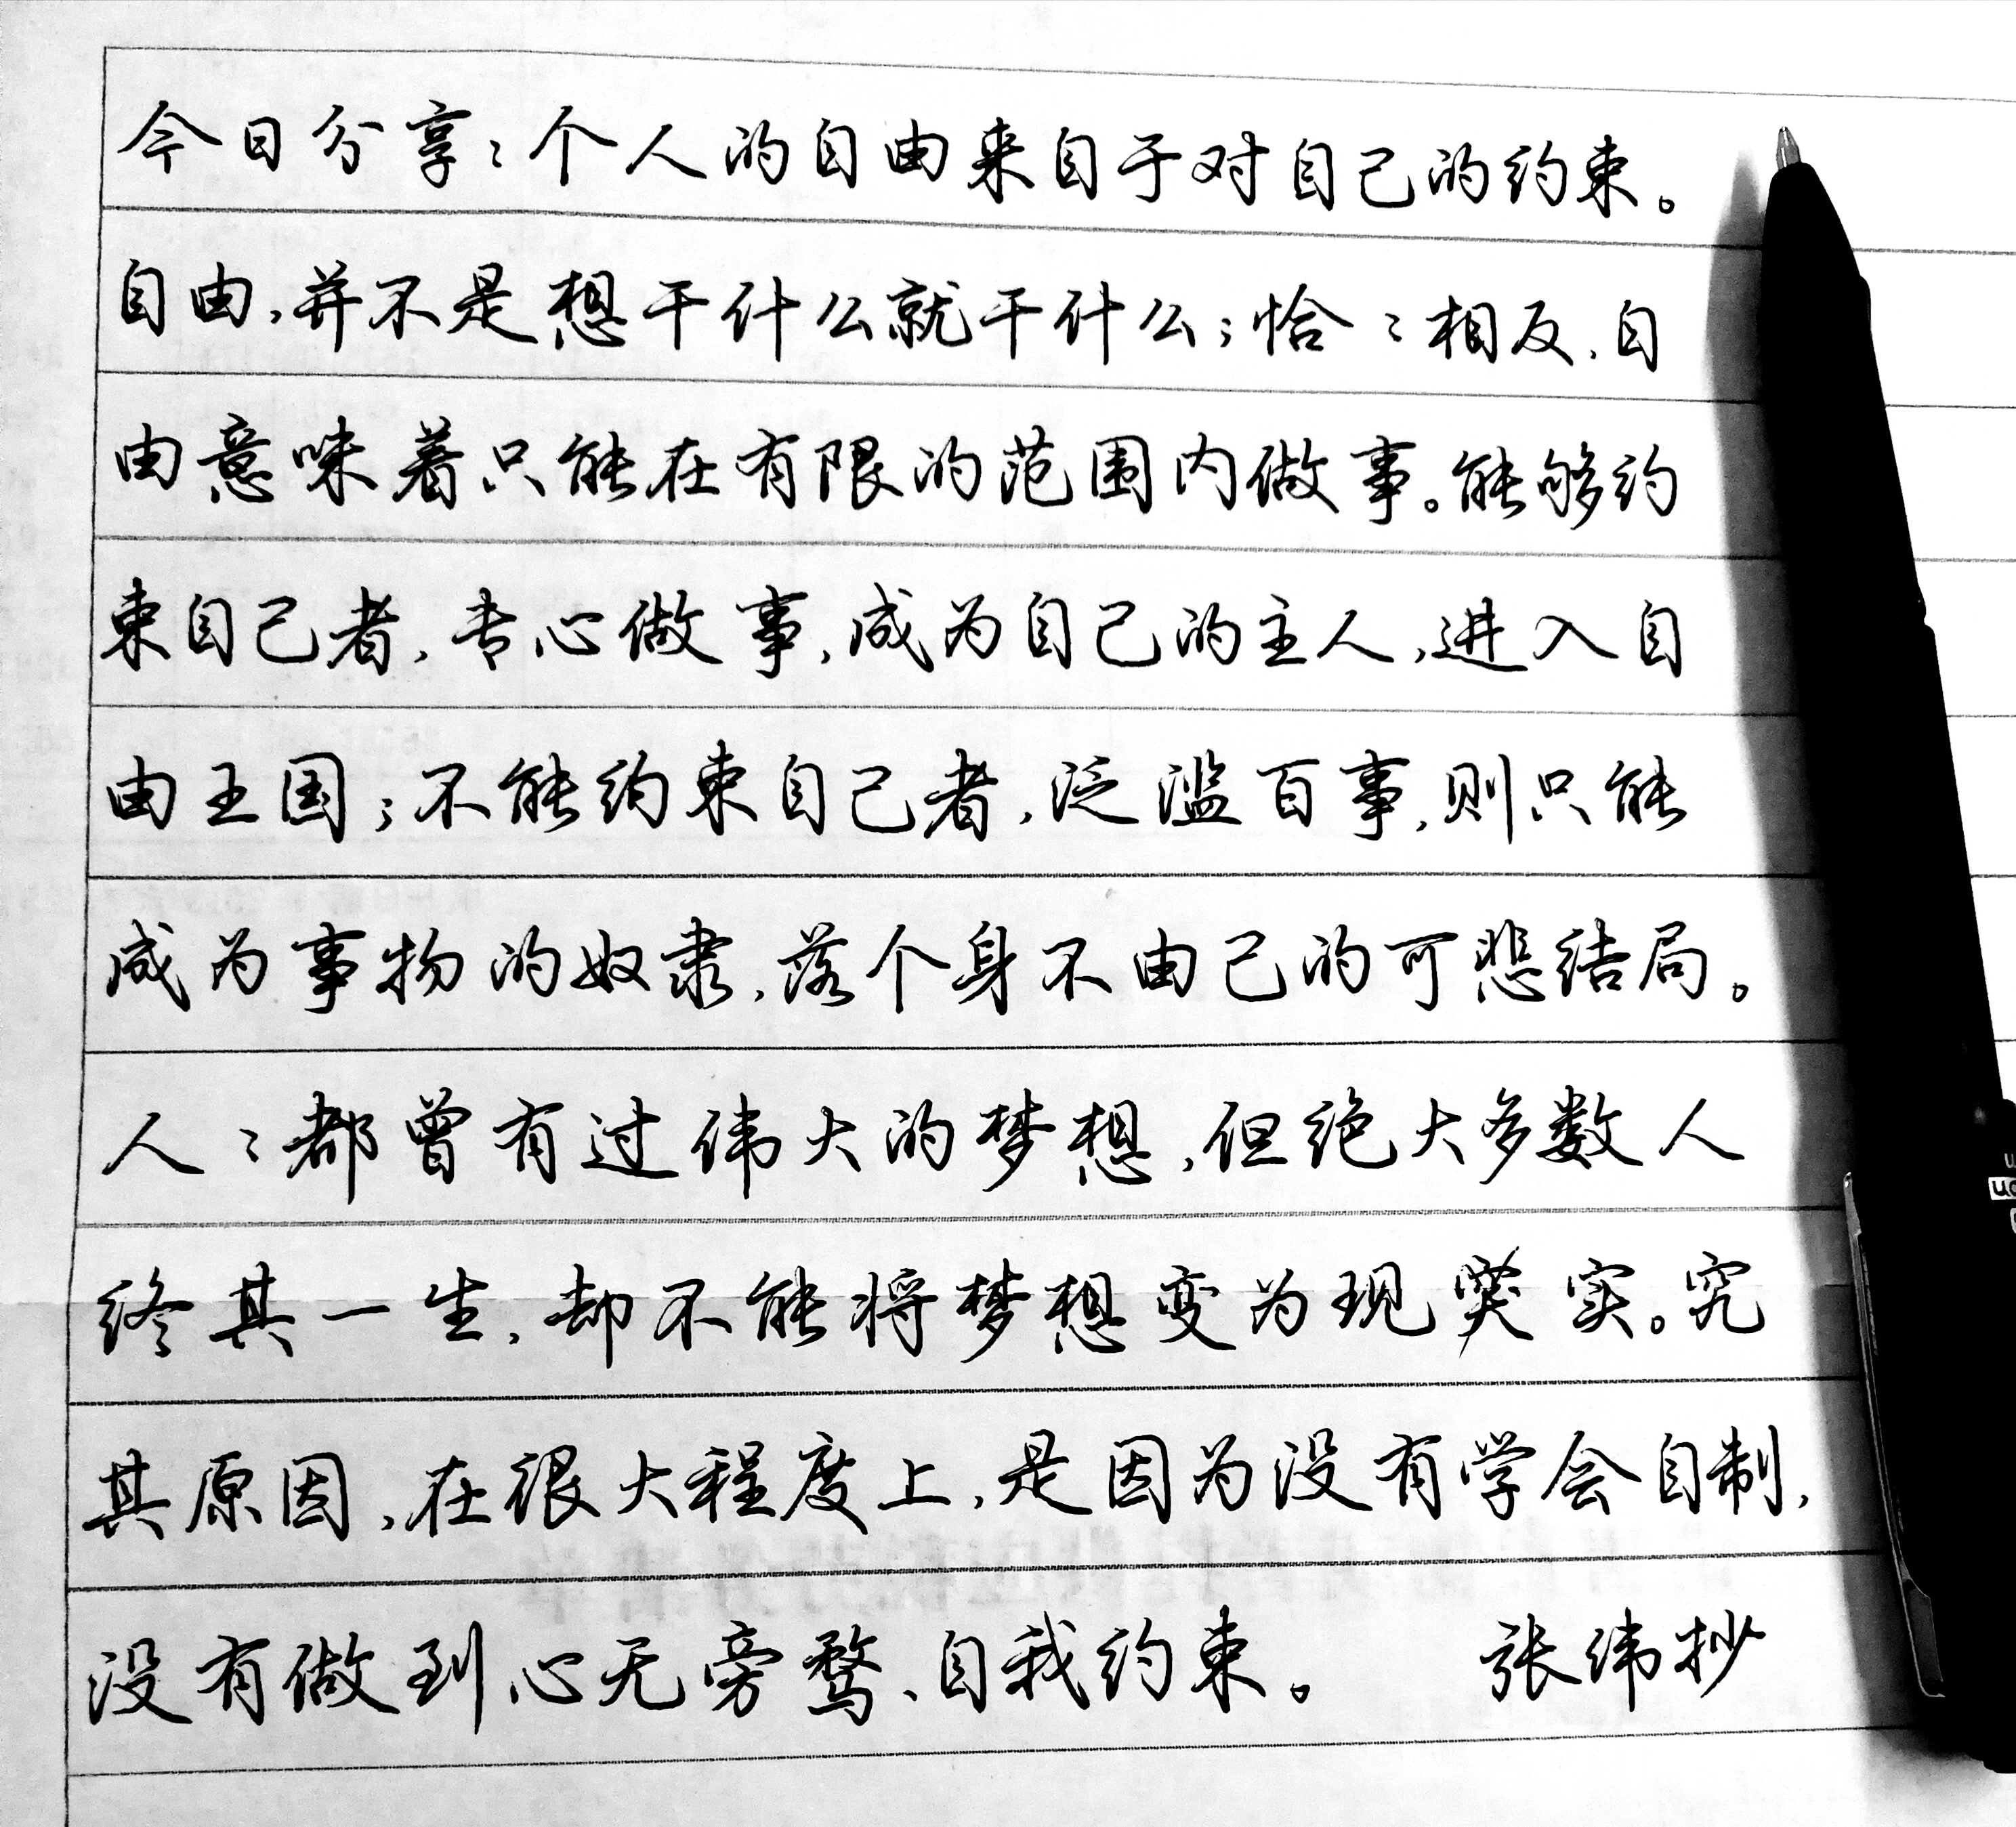 今日分享：个人的自由来自于对自己的约束。
自由，并不是想干什么就干什么；恰々相反，自
由意味着只能在有限的范围内做事。能够约
束自己者，专心做事，成为自己的主人，进入自
由王国；不能约束自己者，泛滥百事，则只能
成为事物的奴隶，落个身不由己的可悲结局。
人々都曾有过伟大的梦想，但绝大多数人
终其一生，却不能将梦想变为现实。究
其原因，在很大程度上，是因为没有学会自制，
没有做到心无旁骛、自我约束。 张纬抄